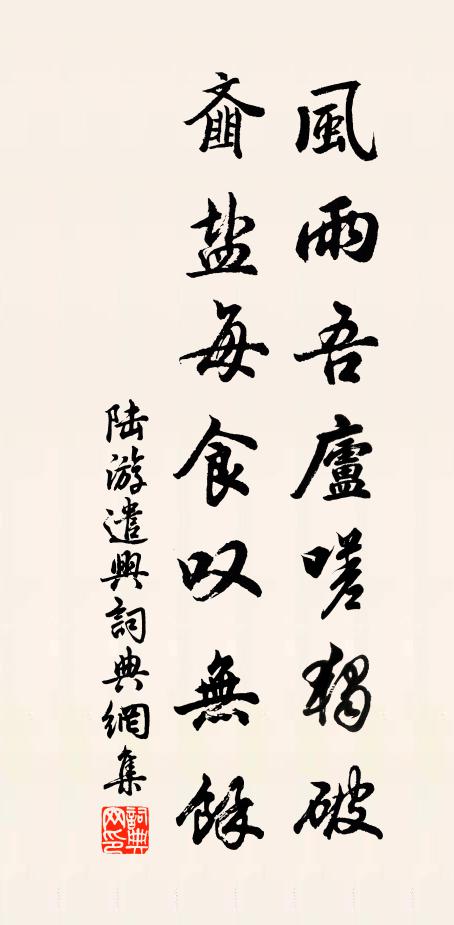 風雨吾廬嗟獨破
齑盐每食叹無餘
陆游遣興詞典網集
詞典網印